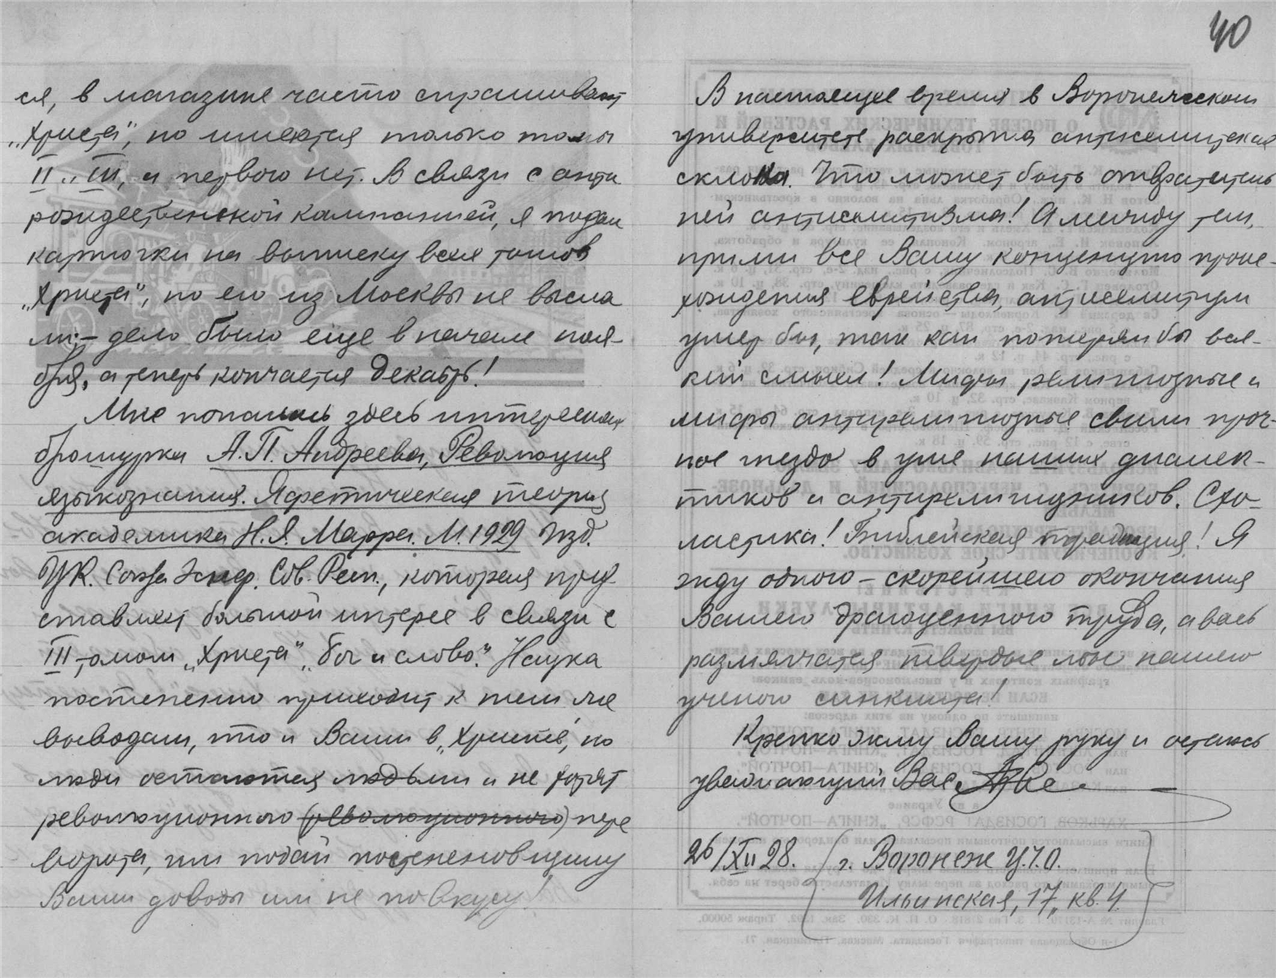 40
ся, в магазине часто спрашивают
„Христа", но имеются только томы
II и III, а первого нет. В связи с анти
рождественской кампанией, я подал
карточки на выписку всех томов
„Христа", но его из Москвы не высла
ли – дело было еще в начале нояб-
бря, а теперь кончается декабрь!
Мне попалась здесь интересная
брошурка А.П. Андреева, Революция
языкознания. Яфетическая теория
академика Н.Я. Марра. М. 1929 Изд.
ЦК. Союза Эспер. Сов. Респ., которая пред
ставляет большой интерес в связи с
III томом „Христа" „Бог и слово". Наука
постепенно приходит к тем же
выводам, что и Ваши в „Христе", но
люди остаются людьми и не хотят
революционного (революционного) пере
ворота, им подай постепеновщину
Ваши доводы им не по вкусу!
В настоящее время в Воронежском
университете раскрыта антисемитская
склока. Что может быть отвратитель
ней антисемитизма! А между тем,
прими все Вашу концепцию проис-
хождения еврейства антисемитизм
умер бы, так как потерял бы вся-
кий смысл! Мифы религиозные и
мифы антирелигиозные свили проч-
ное гнездо в уме наших диалек-
тиков и антирелигиозников. Схо-
ластика! Библейская традиция! Я
жду одного – скорейшего окончания
Вашего драгоценного труда, авось
размягчатся твердые лбы нашего
ученого синклита!
Крепко жму Вашу руку и остаюсь
уважающий Вас
26/XII 28. г. Воронеж Ц.Ч.О.
Ильинская, 17, кв. 4.